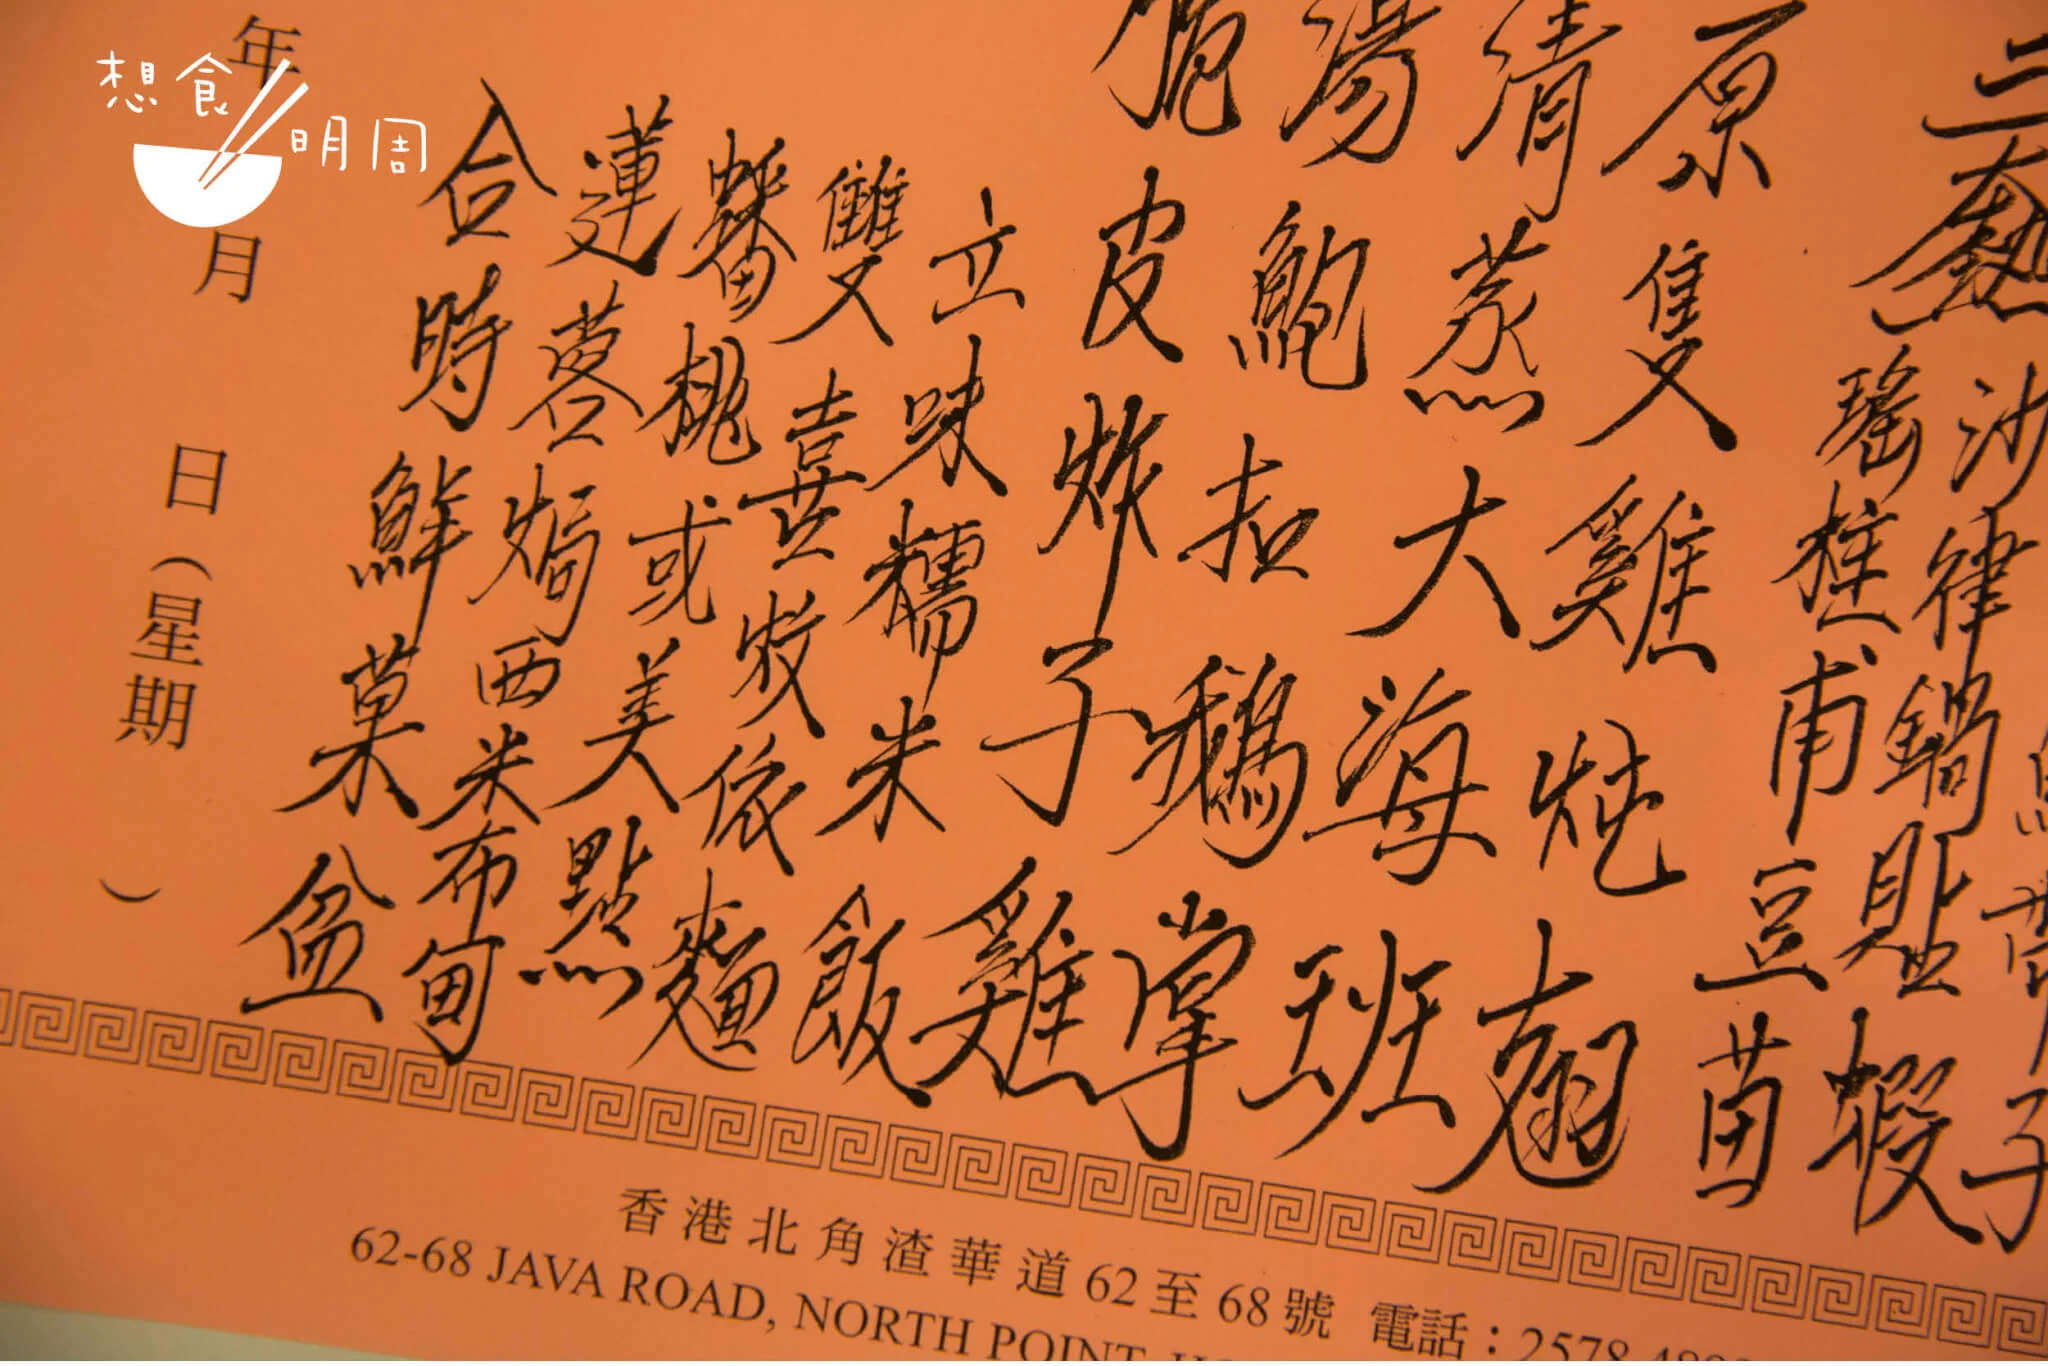 帶子
熱
沙律鍋貼蝦
瑤柱甫豆苗
原隻雞炖翅
清蒸大海班
湯鮑扣鵝掌
脆皮炸子雞
立味糯米飯
雙喜炆依麵
蟠桃或美點
蓮蓉焗西米布甸
合時鮮菓盆
年 月 日（星期 ）
想食明周
香港北角渣華道62至68號 電話：2578
62-68 JAVA ROAD, NORTH POINT,